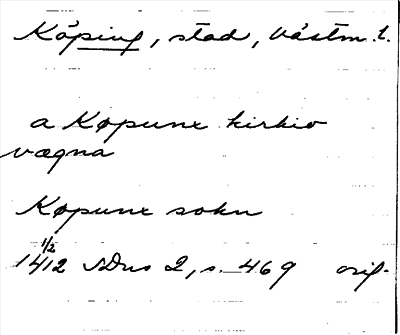 Köping, stad, Västm. l.
a Køpunx kirkio
vægna
Køpunx sokn
1/2
1412 SDns 2, s. 469 orig.